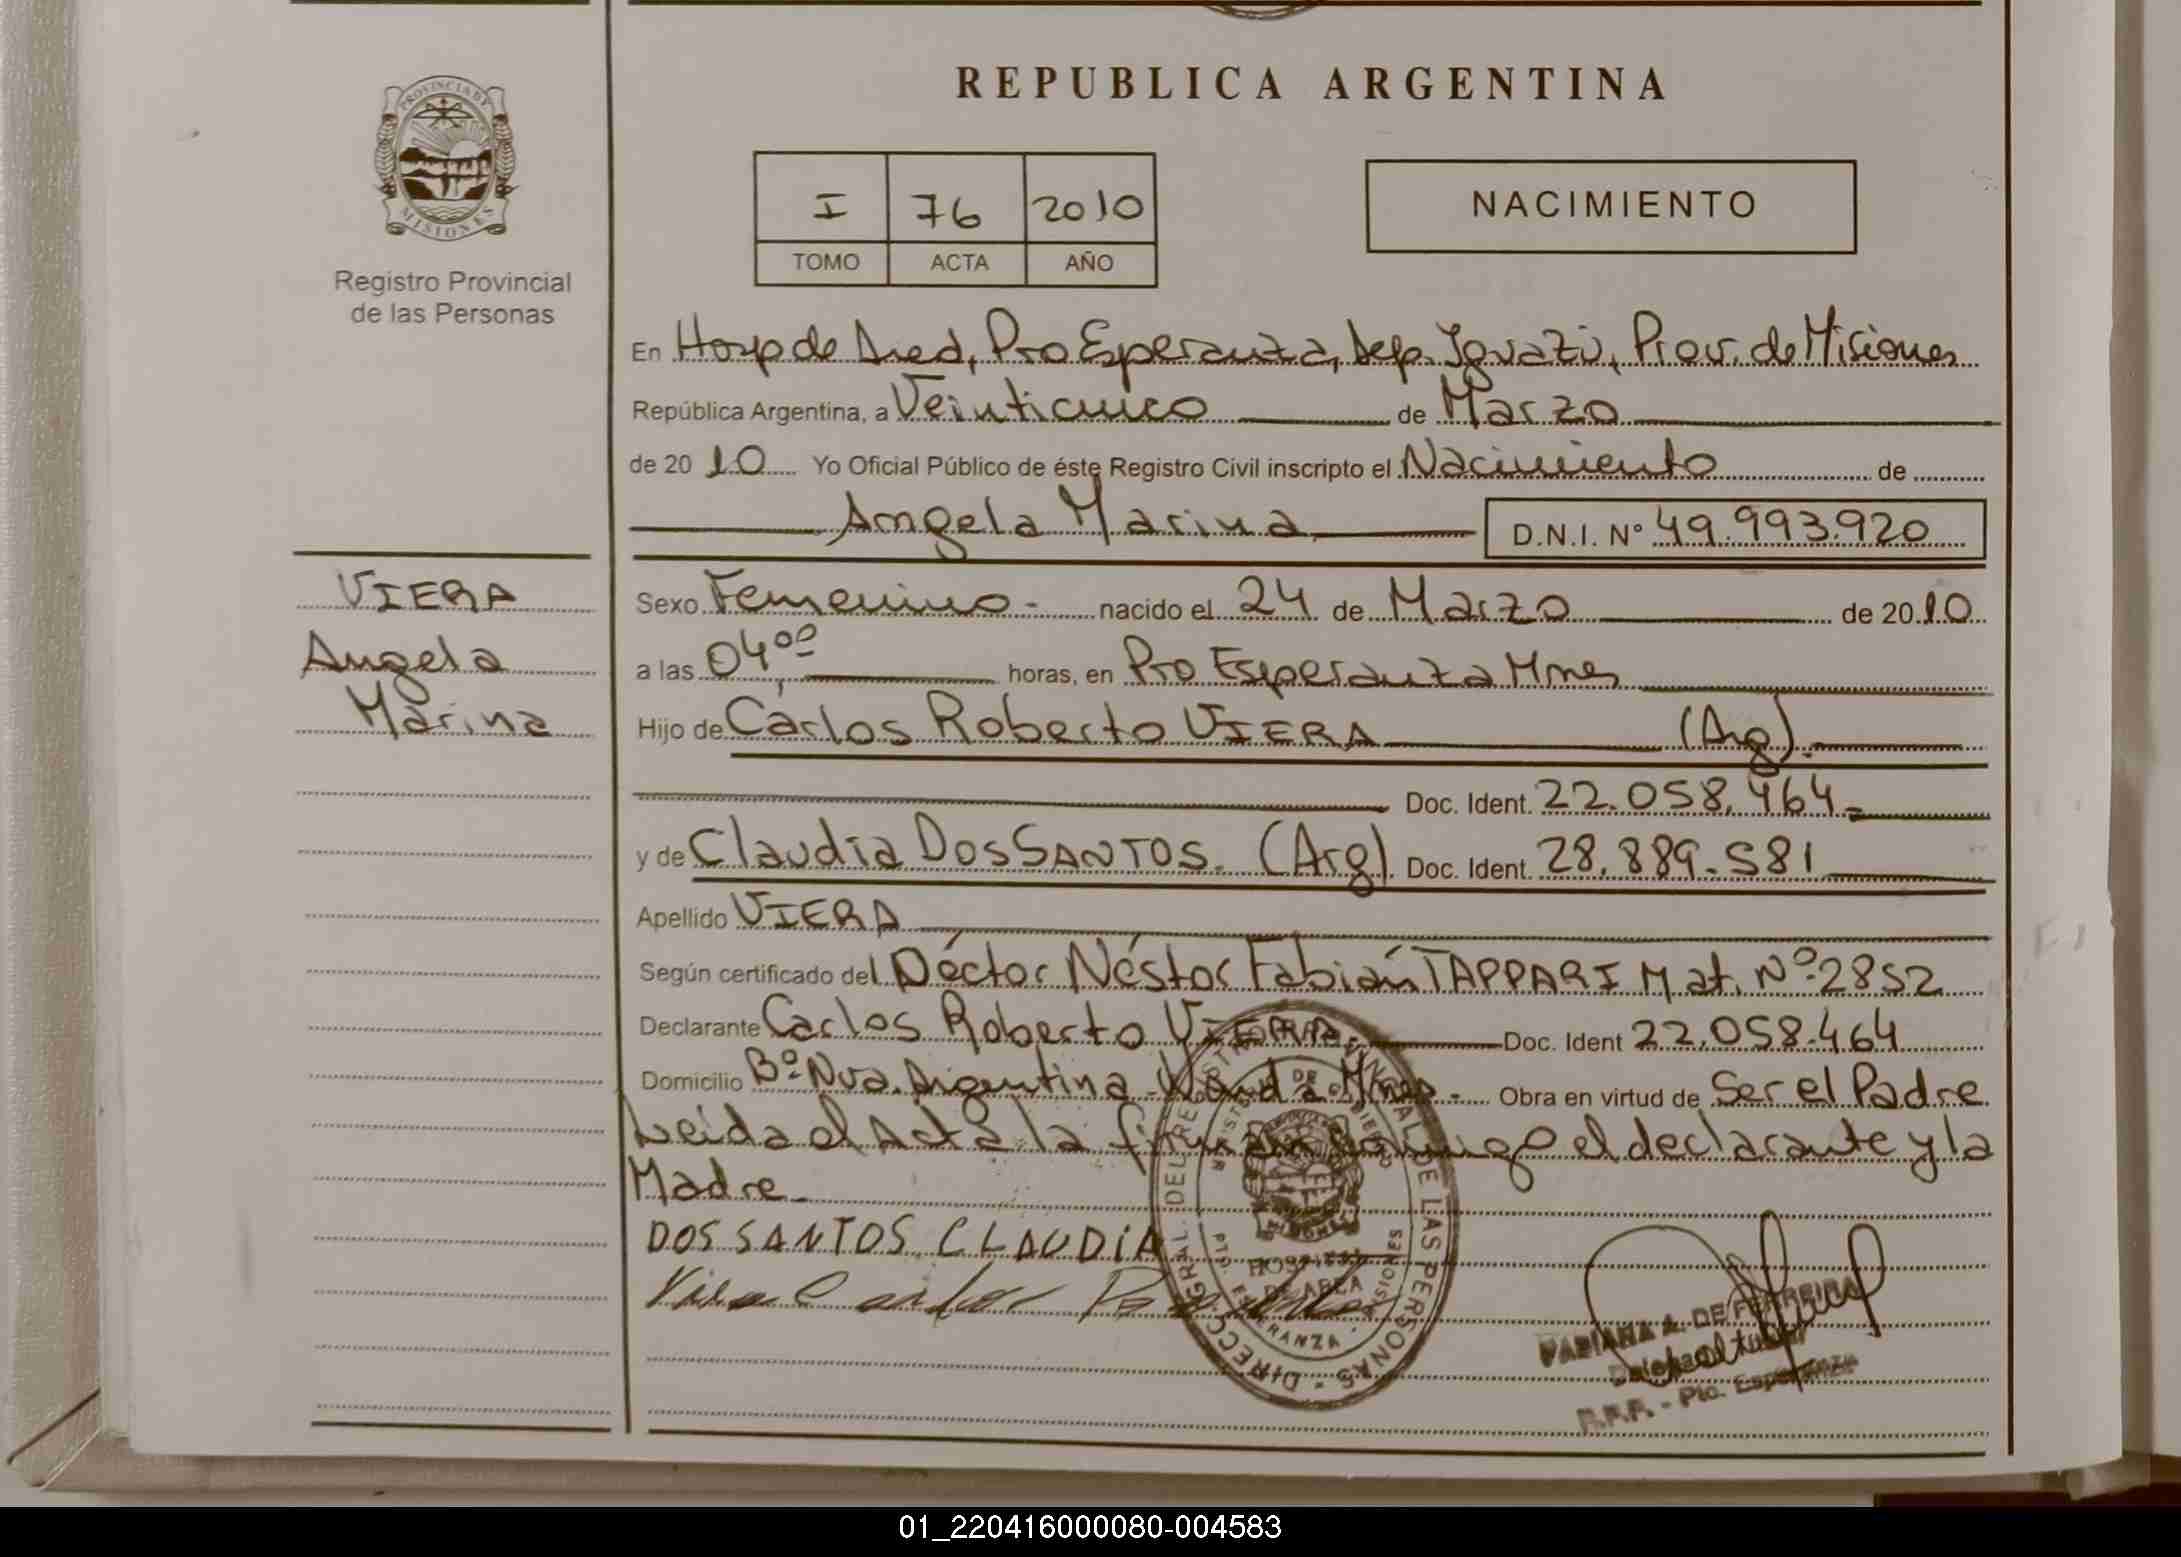 REPUBLICA ARGENTINA
PROVINCIA DE
MISIONES
Registro Provincial
de las Personas
I 76 2010
TOMO ACTA AÑO
NACIMIENTO
En Hosp de Area, Pto Esperanza, Dep. Iguazú, Prov. de Misiones
República Argentina, a Veinticinco de Marzo
de 20 10 Yo Oficial Público de éste Registro Civil inscripto el Nacimiento de
Angela Marina D.N.I. Nº 49.993.920
VIERA
Angela
Marina
Sexo Femenino - nacido el 24 de Marzo de 20 10
a las 04,00 horas, en Pto Esperanza Mnes
Hijo de Carlos Roberto VIERA (Arg).
Doc. Ident. 22.058.464
y de Claudia DOS SANTOS. (Arg). Doc. Ident. 28.889.581
Apellido VIERA
Según certificado del Doctor Néstor Fabián TAPPARI Mat. Nº 2852
Declarante Carlos Roberto VIERA. Doc. Ident 22.058.464
Domicilio Bº Nva. Argentina - Wanda - Mnes - Obra en virtud de Ser el Padre
Leida el Acta la firman conmigo el declarante y la
Madre
DOS SANTOS CLAUDIA
DIRECC. GRAL. DEL REGISTRO PROVINCIAL DE LAS PERSONAS
HOSPITAL
DE AREA
PTO. ESPERANZA - MISIONES
FABIANA A. DE FERREIRA
R.P.P. - Pto. Esperanza
01_220416000080-004583